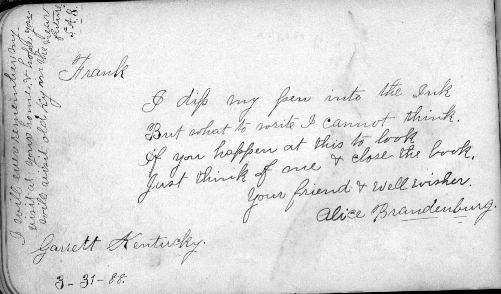 Frank
I dip my pen into the Ink
But what to write I cannot think.
if you happen at this to look
Just think of me & close the book,
Your friend & well wisher.
Alice Brandenburg.
Garrett Kentucky.
3-31-88.
I will ever remember my
visit at your home & hope you
will visit old ky in the near
future
S.A.B.